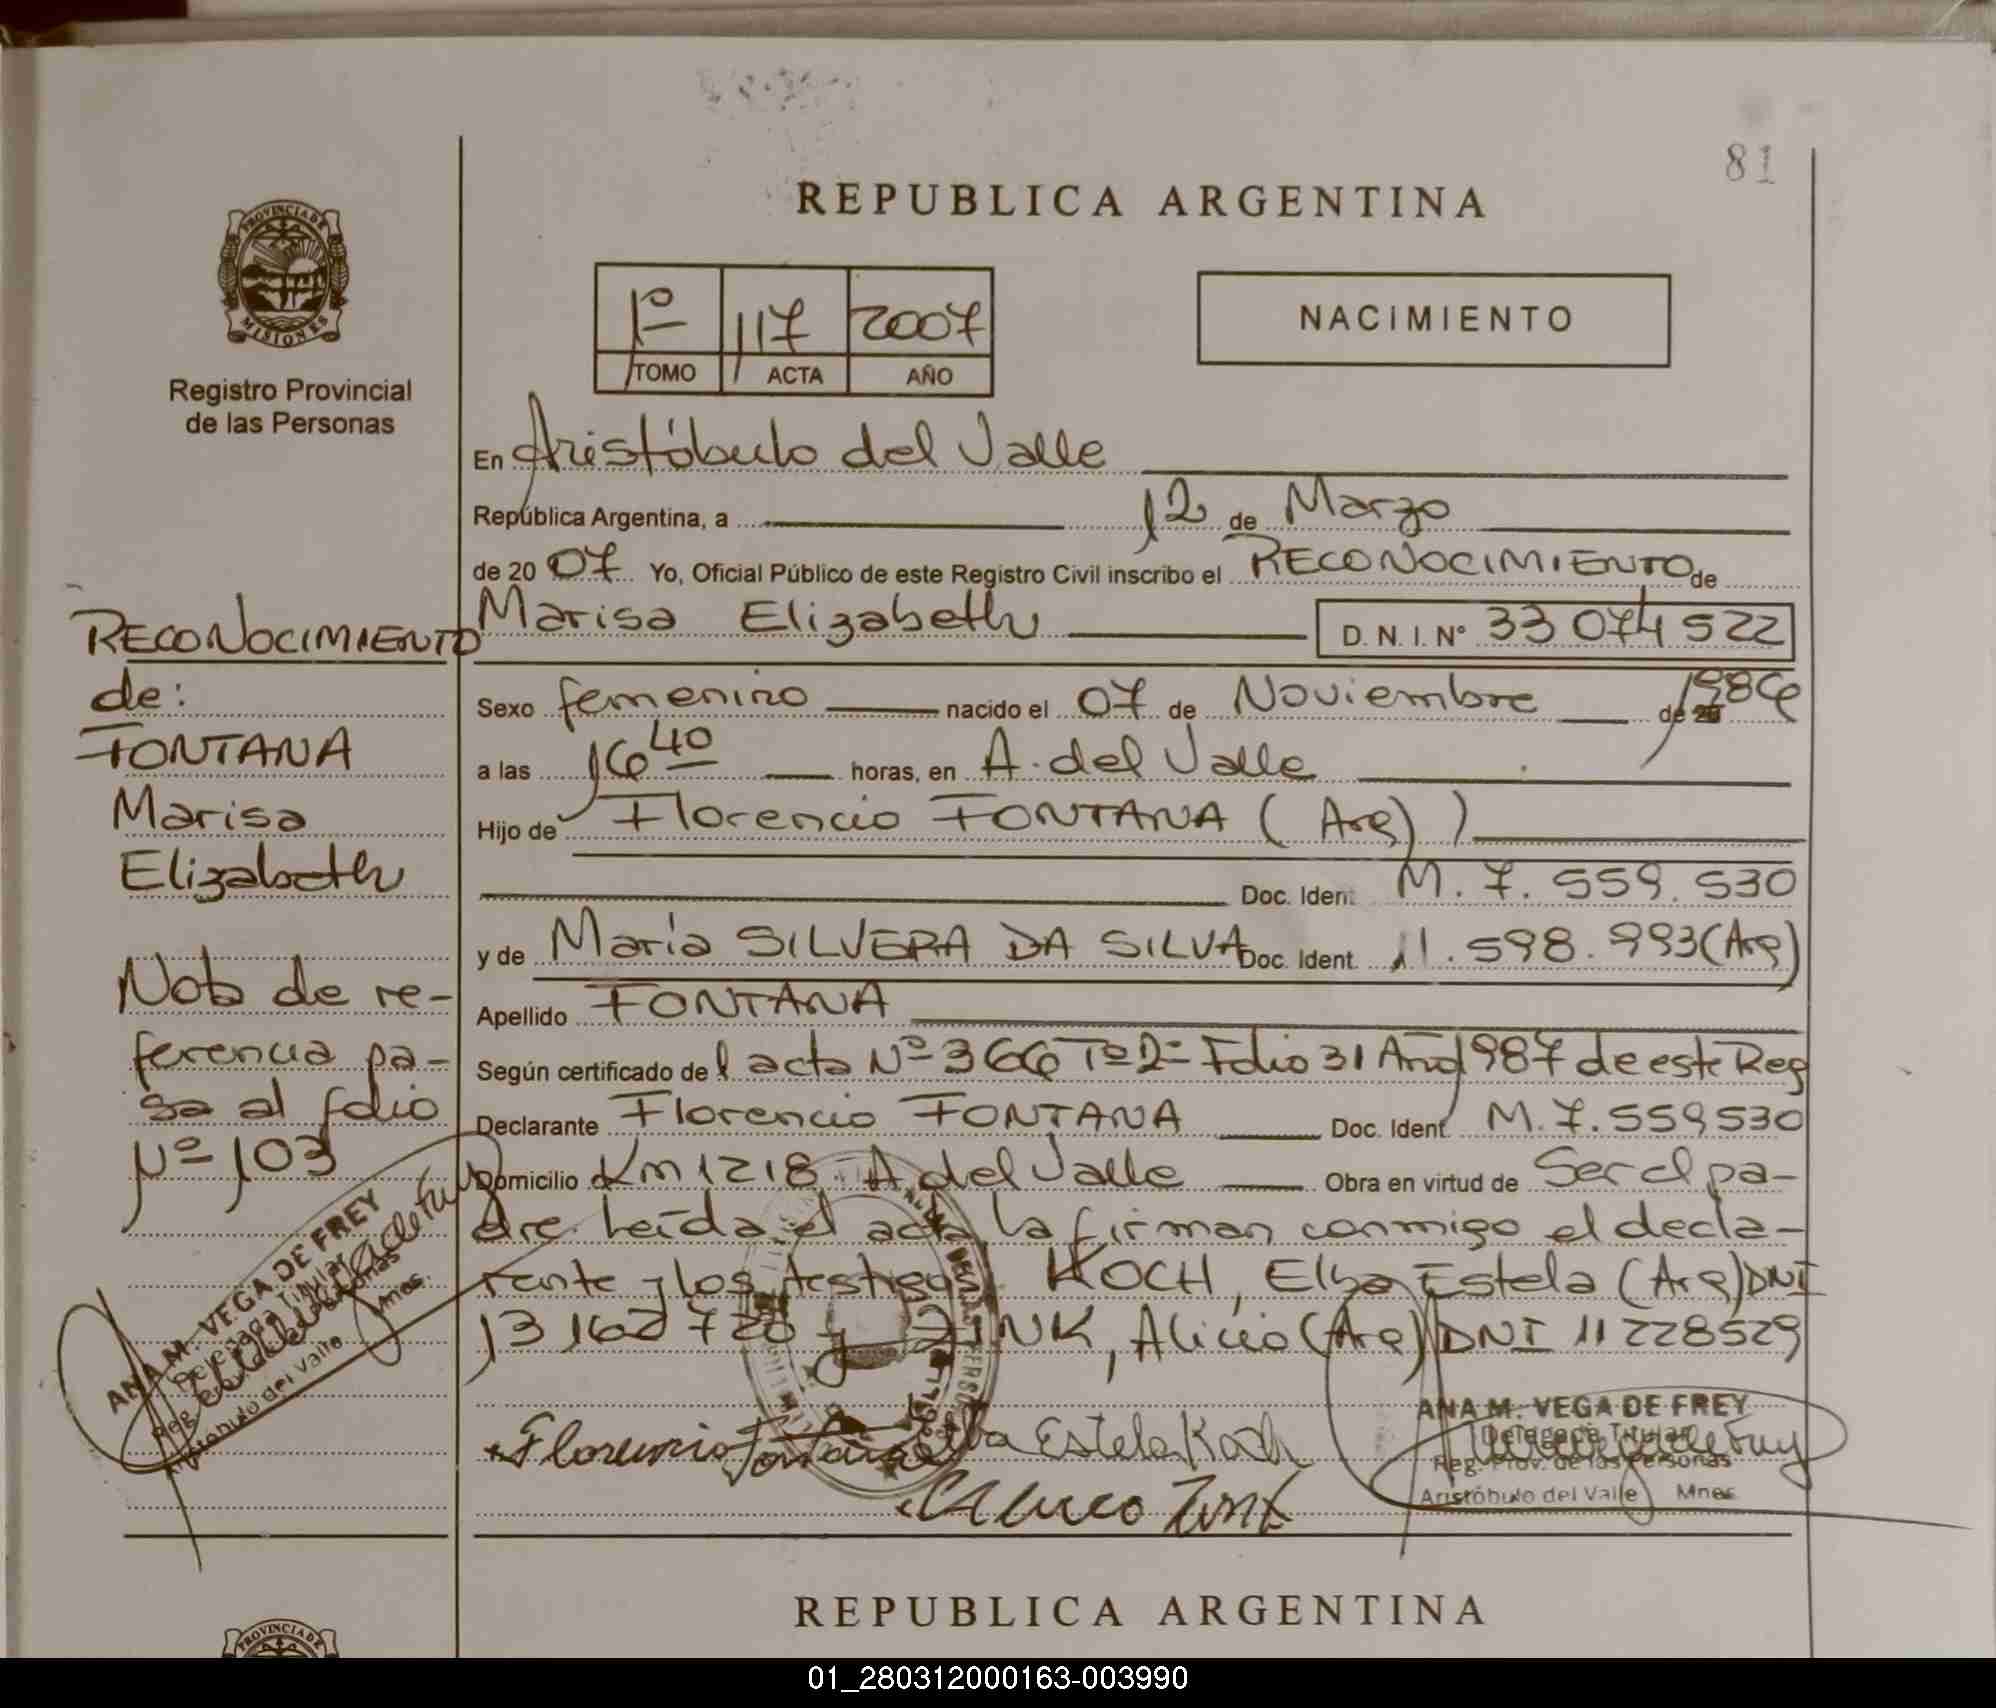 81
REPUBLICA ARGENTINA
PROVINCIA DE
MISIONES
Registro Provincial
de las Personas
1º 117 2007
TOMO ACTA AÑO
NACIMIENTO
En Aristóbulo del Valle
República Argentina, a 12 de Marzo
de 20 07 Yo, Oficial Público de este Registro Civil inscribo el RECONOCIMIENTO de
Marisa Elizabeth D. N. I. Nº 33 074 522
Sexo femenino nacido el 07 de Noviembre de 1986
a las 16 40 horas, en A. del Valle
Hijo de Florencio FONTANA (Arg)
Doc. Ident. M. 7. 559. 530
y de María SILVERA DA SILVA Doc. Ident. 11. 598. 993 (Arg)
Apellido FONTANA
Según certificado del acta Nº 366 Tº 2º Folio 31 Año 1987 de este Reg
Declarante Florencio FONTANA Doc. Ident. M. 7. 559530
Domicilio Km 1218 A del Valle Obra en virtud de Ser el pa-
dre. Leída el acta la firman conmigo el decla-
rante y los testigos KOCH, Elba Estela (Arg) DNI
13162720 y ZINK, Alicia (Arg) DNI 11228529
Florencio Fontana Elba Estela Koch
Zink
ANA M. VEGA DE FREY
Delegada Titular
Reg. Prov. de las Personas
Aristóbulo del Valle Mnes
RECONOCIMIENTO
de:
FONTANA
Marisa
Elizabeth
Nota de re-
ferencia pa-
sa al folio
Nº 103
ANA M. VEGA DE FREY
Delegada Titular
Reg. Prov. de las Personas
Aristóbulo del Valle Mnes.
REPUBLICA ARGENTINA
PROVINCIA DE
01_280312000163-003990